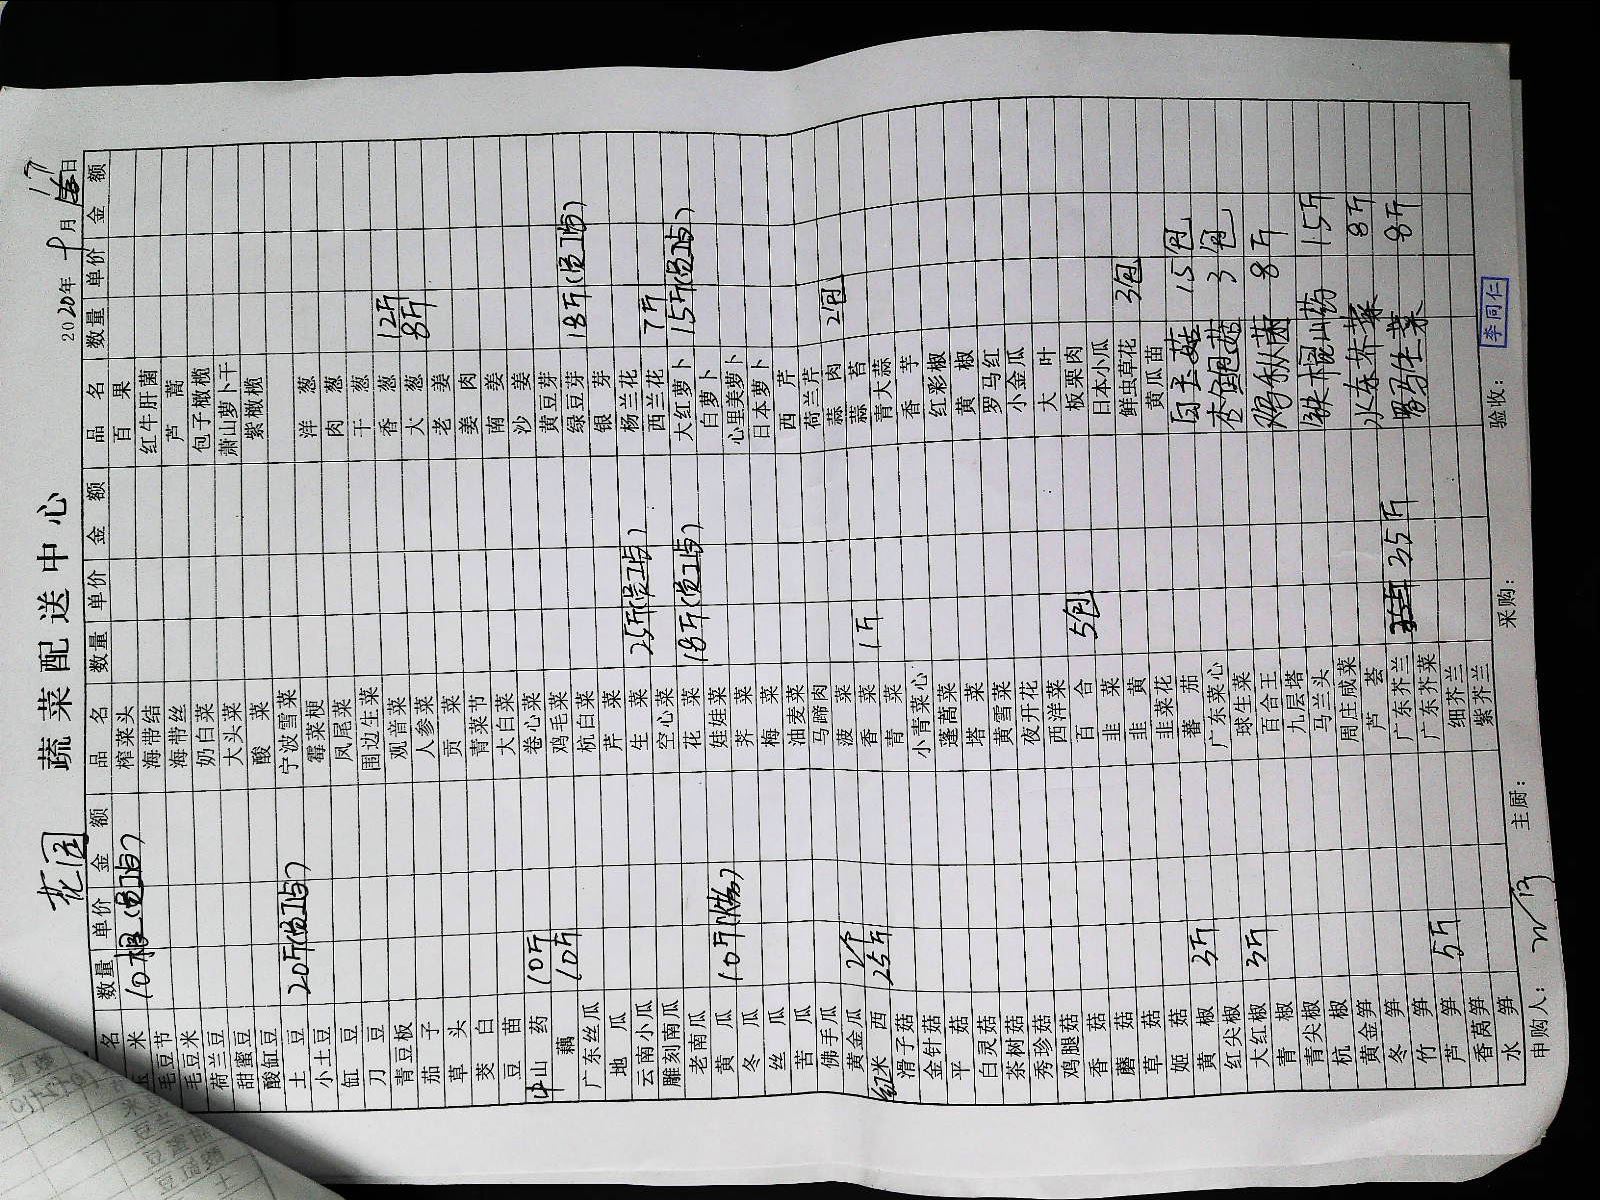 花园 蔬菜配送中心 2020年十月17日
品名 数量 单价 金额
玉米 10根(员工与)
毛豆节
毛豆米
荷兰豆
甜蜜豆
酸缸豆
土豆 20斤(员工与)
小土豆
缸豆
刀豆
青豆板
茄子
草头
茭白
豆苗
山药 10斤
藕 10斤
广东丝瓜
地瓜
云南小瓜
雕刻南瓜
老南瓜
黄瓜 10斤
冬瓜
丝瓜
苦瓜
佛手瓜
黄金瓜 2个
红米西 25斤
滑子菇
金针菇
平菇
白灵菇
茶树菇
秀珍菇
鸡腿菇
香菇
蘑菇
草菇
姬菇
黄椒 3斤
红尖椒
大红椒 3斤
青椒
青尖椒
杭椒
黄金笋
冬笋
竹笋
芦笋 5斤
香莴笋
水笋
品名 数量 单价 金额
榨菜头
海带结
海带丝
奶白菜
大头菜
酸菜
宁波雪菜
霉菜梗
凤尾菜
围边生菜
观音菜
人参菜
贡菜
青菜节
大白菜
卷心菜
鸡毛菜
杭白菜
芹菜
生菜 25斤(员工与)
空心菜
花菜 18斤(员工与)
娃娃菜
荠菜
梅菜
油麦菜
马蹄肉
菠菜
香菜 1斤
青菜
小青菜心
蓬蒿菜
塔菜
黄雪菜
夜开花
西洋菜
百合 5包
韭菜
韭黄
韭菜花
蕃茄
广东菜心
球生菜
百合王
九层塔
马兰头
周庄咸菜
芦荟
广东芥兰 35斤
广东芥菜
细芥兰
紫芥兰
品名 数量 单价 金额
百果
红牛肝菌
芦蒿
包子橄榄
萧山萝卜干
紫橄榄
洋葱
肉葱
干葱
香葱 12斤
大葱 8斤
老姜
姜肉
南姜
沙姜
黄豆芽
绿豆芽 18斤(员工与)
银芽
杨兰花
西兰花 7斤
大红萝卜 15斤(员工与)
白萝卜
心里美萝卜
日本萝卜
西芹
荷兰芹
蒜肉 2包
蒜苔
青大蒜
香芋
红彩椒
黄椒
罗马红
小金瓜
大叶
板栗肉
日本小瓜
鲜虫草花 3包
黄瓜苗
白玉菇 15包
杏鲍菇 3包
鸡枞菌 8斤
铁棍山药 15斤
水东芥菜 8斤
罗马生菜 8斤
申购人: 主厨: 采购: 验收:
李同仁